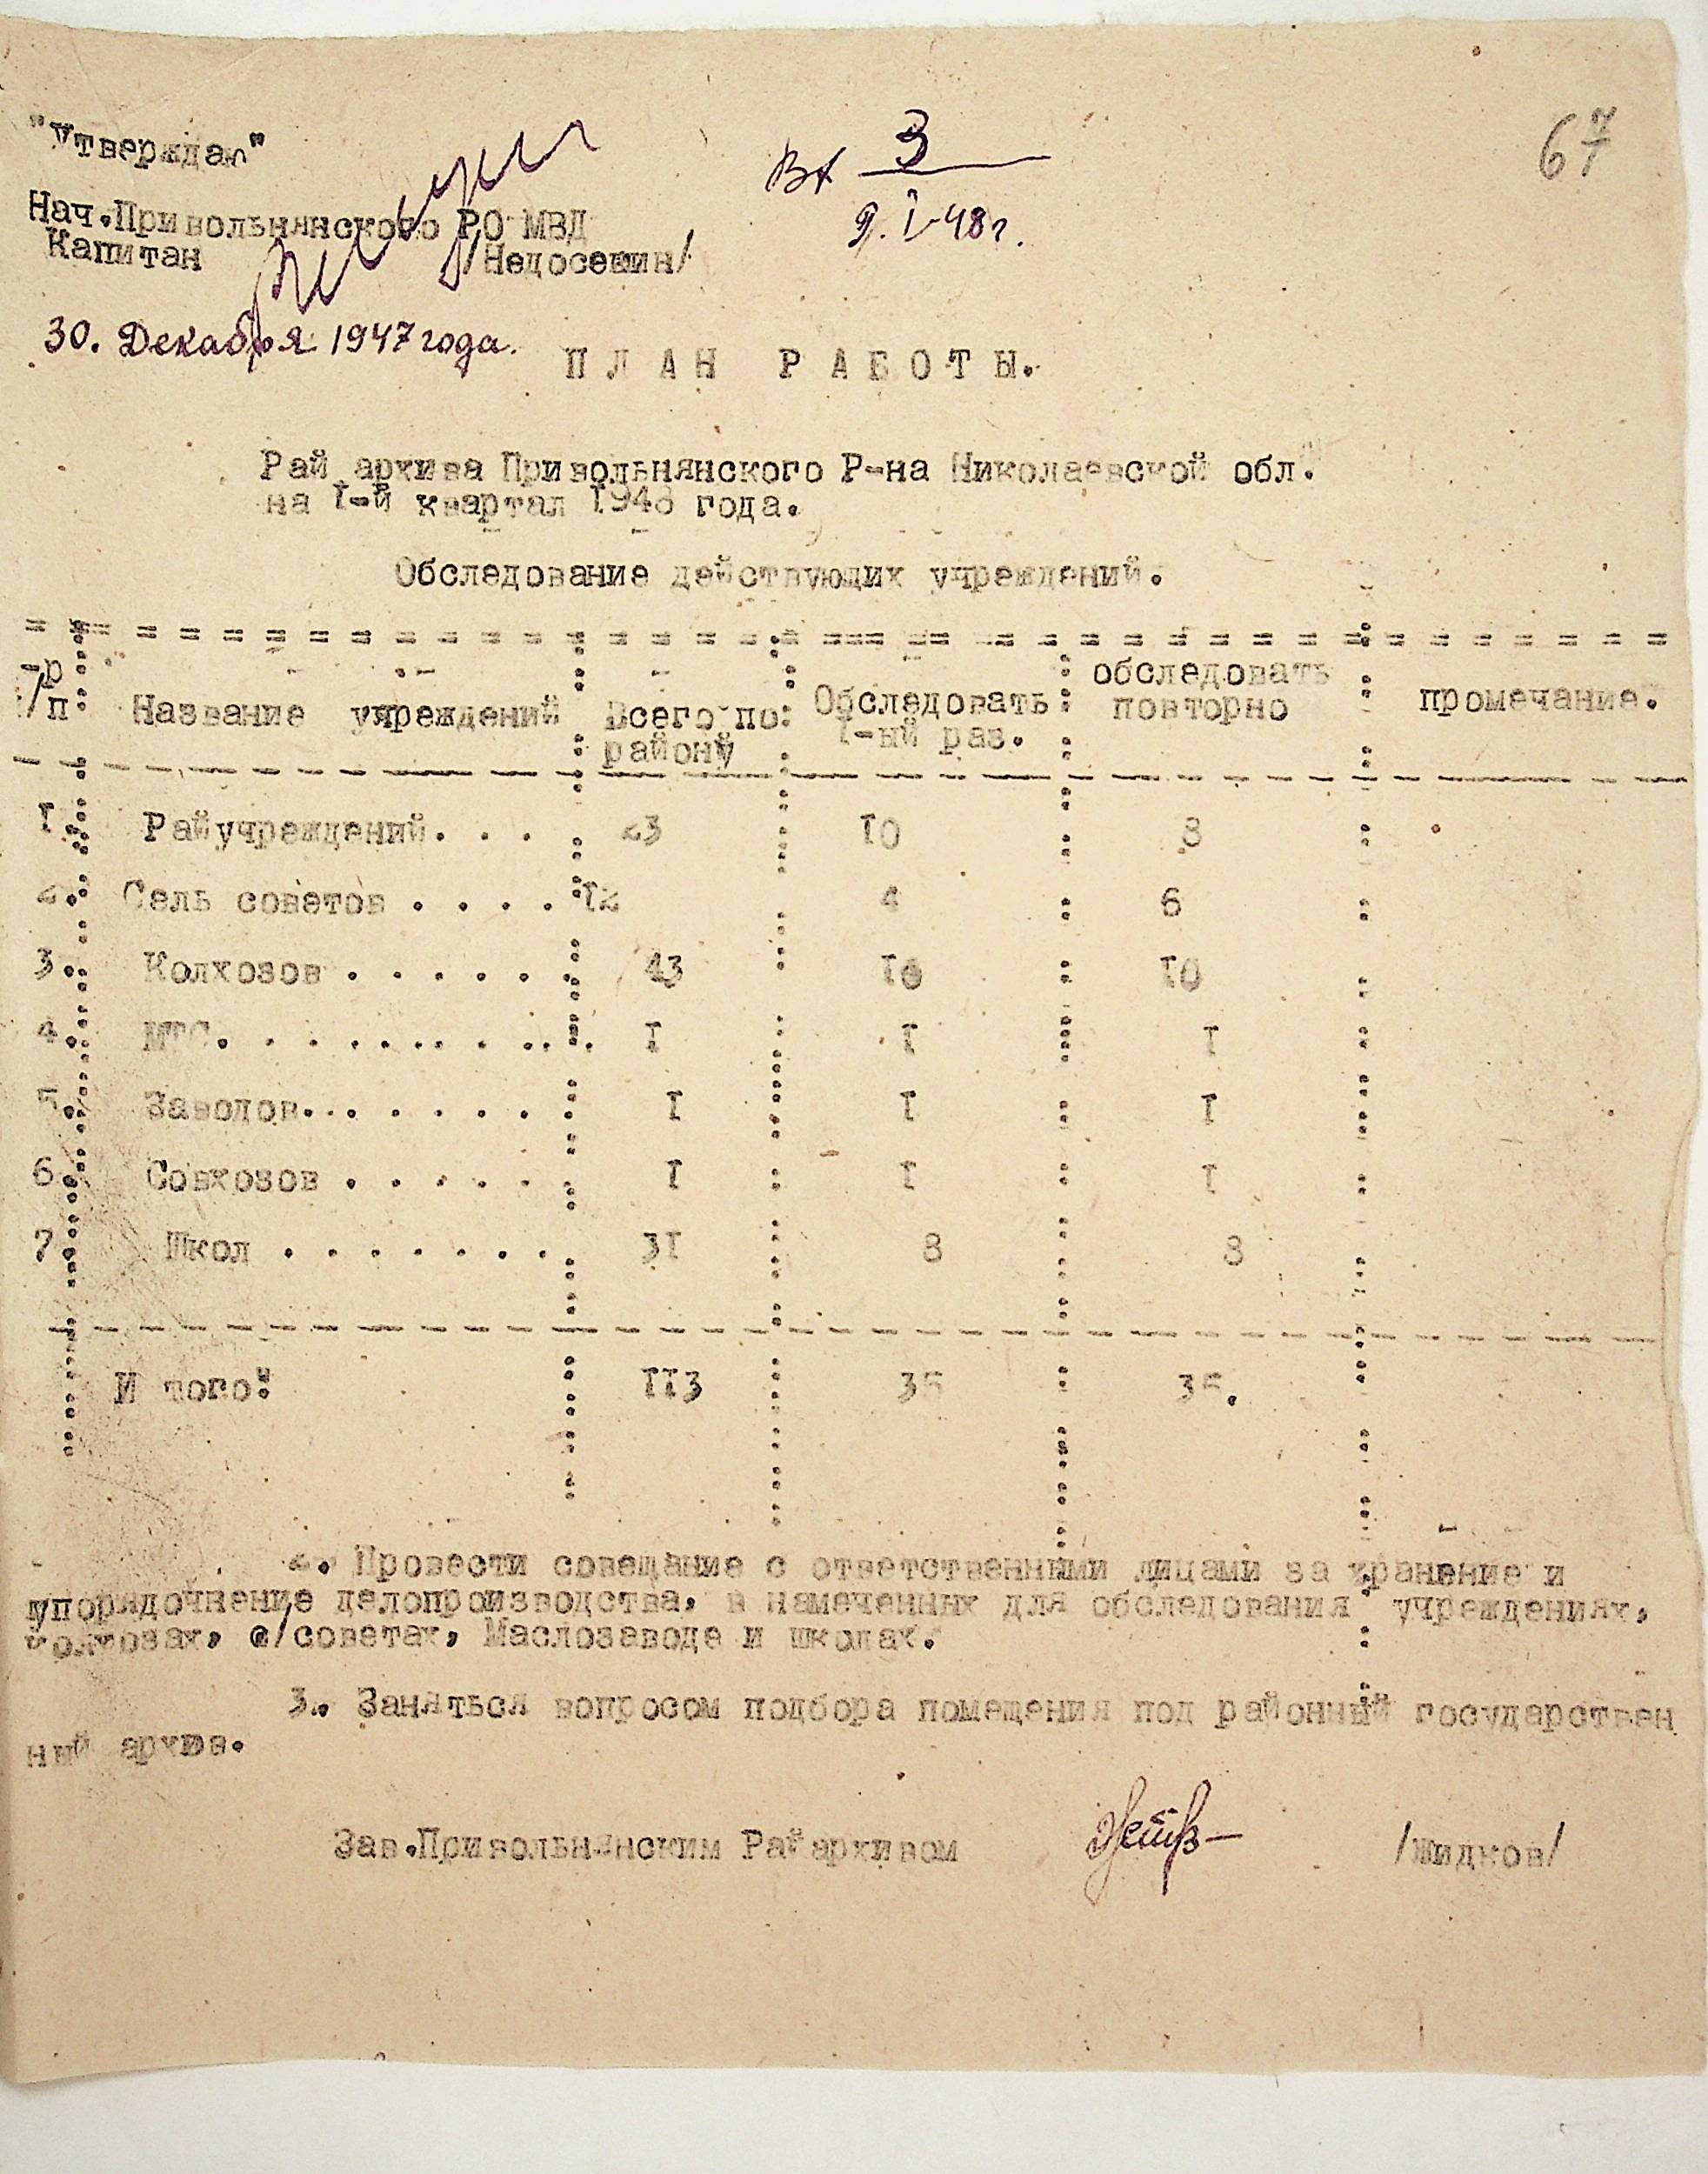 "Утверждаю"
Вх 3
67
Нач.Привольнянского РО МВД
9. I-48г.
Капитан /Недосекин/
30. Декабря 1947 года.
ПЛАН РАБОТЫ.
Рай архива Привольнянского Р-на Николаевской обл.
на I-й квартал 1948 года.
Обследование действующих учреждений.
-р /п Название учреждений Всего по району Обследовать I-ый раз. обследовать повторно промечание.
I. Райучреждений. . . 23 I0 8
2. Сель советов . . . . I2 4 6
3. Колхозов . . . . . 43 I0 I0
4. МТС. . . . . . . . . . . I I I
5. Заводов. . . . . . . I I I
6. Совхозов . . . . . I I I
7. Школ . . . . . . . 3I 8 8
И того: II3 35 35.
2. Провести совещание с ответственными лицами за хранение и
упорядочнение делопроизводства, в намеченных для обследования учреждениях,
колхозах, с/советах, Маслозаводе и школах.
3. Заняться вопросом подбора помещения под районный государствен
ный архив.
Зав.Привольнянским Райархивом /Жидков/